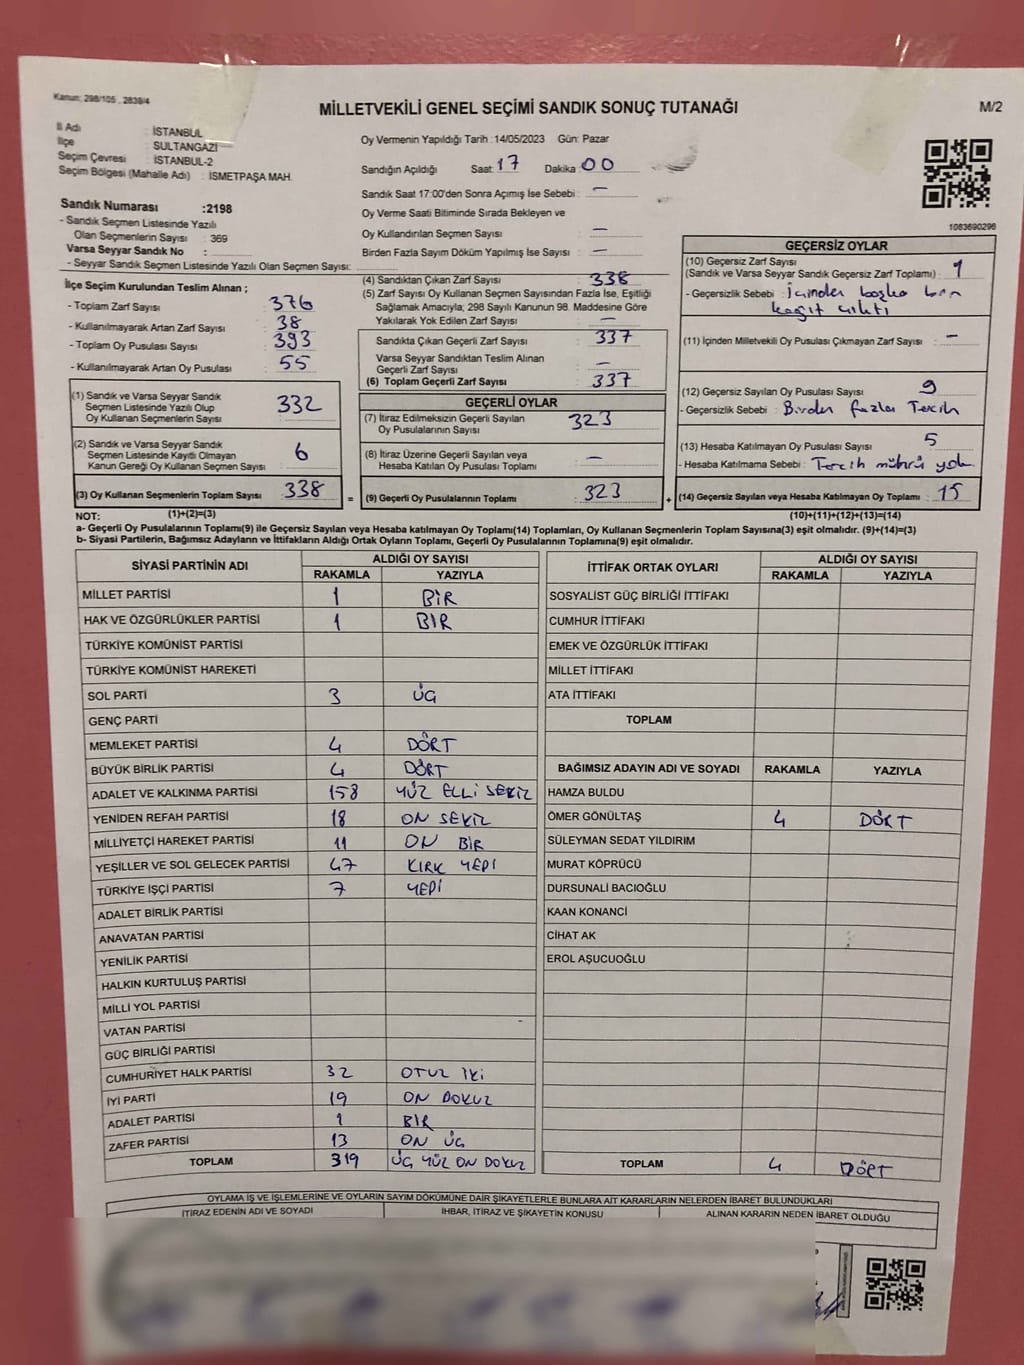 Kanun: 298/105 , 2839/4
MİLLETVEKİLİ GENEL SEÇİMİ SANDIK SONUÇ TUTANAĞI
M/2
İl Adı : İSTANBUL
İlçe : SULTANGAZİ
Seçim Çevresi : İSTANBUL-2
Seçim Bölgesi (Mahalle Adı) : İSMETPAŞA MAH.
Sandık Numarası :2198
- Sandık Seçmen Listesinde Yazılı
Olan Seçmenlerin Sayısı : 369
Varsa Seyyar Sandık No :
- Seyyar Sandık Seçmen Listesinde Yazılı Olan Seçmen Sayısı:
Oy Vermenin Yapıldığı Tarih :14/05/2023 Gün: Pazar
Sandığın Açıldığı Saat: 17 Dakika: 00
Sandık Saat 17:00'den Sonra Açımış İse Sebebi : —
Oy Verme Saati Bitiminde Sırada Bekleyen ve
Oy Kullandırılan Seçmen Sayısı : —
Birden Fazla Sayım Döküm Yapılmış İse Sayısı : —
1083690296
İlçe Seçim Kurulundan Teslim Alınan ;
- Toplam Zarf Sayısı : 376
- Kullanılmayarak Artan Zarf Sayısı : 38
- Toplam Oy Pusulası Sayısı : 393
- Kullanılmayarak Artan Oy Pusulası : 55
(1) Sandık ve Varsa Seyyar Sandık
Seçmen Listesinde Yazılı Olup
Oy Kullanan Seçmenlerin Sayısı : 332
(2) Sandık ve Varsa Seyyar Sandık
Seçmen Listesinde Kayıtlı Olmayan
Kanun Gereği Oy Kullanan Seçmen Sayısı : 6
(3) Oy Kullanan Seçmenlerin Toplam Sayısı : 338
(4) Sandıktan Çıkan Zarf Sayısı : 338
(5) Zarf Sayısı Oy Kullanan Seçmen Sayısından Fazla İse, Eşitliği
Sağlamak Amacıyla; 298 Sayılı Kanunun 98. Maddesine Göre
Yakılarak Yok Edilen Zarf Sayısı : —
Sandıkta Çıkan Geçerli Zarf Sayısı : 337
Varsa Seyyar Sandıktan Teslim Alınan
Geçerli Zarf Sayısı : —
(6) Toplam Geçerli Zarf Sayısı : 337
GEÇERLİ OYLAR
(7) İtiraz Edilmeksizin Geçerli Sayılan
Oy Pusulalarının Sayısı : 323
(8) İtiraz Üzerine Geçerli Sayılan veya
Hesaba Katılan Oy Pusulası Toplamı : —
= (9) Geçerli Oy Pusulalarının Toplamı : 323
GEÇERSİZ OYLAR
(10) Geçersiz Zarf Sayısı
(Sandık ve Varsa Seyyar Sandık Geçersiz Zarf Toplamı) : 1
- Geçersizlik Sebebi : İçinden başka bir
kağıt çıktı
(11) İçinden Milletvekili Oy Pusulası Çıkmayan Zarf Sayısı : —
(12) Geçersiz Sayılan Oy Pusulası Sayısı : 9
- Geçersizlik Sebebi : Birden fazla Tercih
(13) Hesaba Katılmayan Oy Pusulası Sayısı : 5
- Hesaba Katılmama Sebebi : Tercih mührü yok
+ (14) Geçersiz Sayılan veya Hesaba Katılmayan Oy Toplamı : 15
NOT: (1)+(2)=(3)
(10)+(11)+(12)+(13)=(14)
a- Geçerli Oy Pusulalarının Toplamı(9) ile Geçersiz Sayılan veya Hesaba katılmayan Oy Toplamı(14) Toplamları, Oy Kullanan Seçmenlerin Toplam Sayısına(3) eşit olmalıdır. (9)+(14)=(3)
b- Siyasi Partilerin, Bağımsız Adayların ve İttifakların Aldığı Ortak Oyların Toplamı, Geçerli Oy Pusulalarının Toplamına(9) eşit olmalıdır.
SİYASİ PARTİNİN ADI ALDIĞI OY SAYISI
RAKAMLA YAZIYLA
MİLLET PARTİSİ 1 BİR
HAK VE ÖZGÜRLÜKLER PARTİSİ 1 BİR
TÜRKİYE KOMÜNİST PARTİSİ
TÜRKİYE KOMÜNİST HAREKETİ
SOL PARTİ 3 ÜÇ
GENÇ PARTİ
MEMLEKET PARTİSİ 4 DÖRT
BÜYÜK BİRLİK PARTİSİ 4 DÖRT
ADALET VE KALKINMA PARTİSİ 158 YÜZ ELLİ SEKİZ
YENİDEN REFAH PARTİSİ 18 ON SEKİZ
MİLLİYETÇİ HAREKET PARTİSİ 11 ON BİR
YEŞİLLER VE SOL GELECEK PARTİSİ 47 KIRK YEDİ
TÜRKİYE İŞÇİ PARTİSİ 7 YEDİ
ADALET BİRLİK PARTİSİ
ANAVATAN PARTİSİ
YENİLİK PARTİSİ
HALKIN KURTULUŞ PARTİSİ
MİLLİ YOL PARTİSİ
VATAN PARTİSİ
GÜÇ BİRLİĞİ PARTİSİ
CUMHURİYET HALK PARTİSİ 32 OTUZ İKİ
İYİ PARTİ 19 ON DOKUZ
ADALET PARTİSİ 1 BİR
ZAFER PARTİSİ 13 ON ÜÇ
TOPLAM 319 ÜÇ YÜZ ON DOKUZ
İTTİFAK ORTAK OYLARI ALDIĞI OY SAYISI
RAKAMLA YAZIYLA
SOSYALİST GÜÇ BİRLİĞİ İTTİFAKI
CUMHUR İTTİFAKI
EMEK VE ÖZGÜRLÜK İTTİFAKI
MİLLET İTTİFAKI
ATA İTTİFAKI
TOPLAM
BAĞIMSIZ ADAYIN ADI VE SOYADI RAKAMLA YAZIYLA
HAMZA BULDU
ÖMER GÖNÜLTAŞ 4 DÖRT
SÜLEYMAN SEDAT YILDIRIM
MURAT KÖPRÜCÜ
DURSUNALİ BACIOĞLU
KAAN KONANCİ
CİHAT AK
EROL AŞUCUOĞLU
TOPLAM 4 DÖRT
OYLAMA İŞ VE İŞLEMLERİNE VE OYLARIN SAYIM DÖKÜMÜNE DAİR ŞİKAYETLERLE BUNLARA AİT KARARLARIN NELERDEN İBARET BULUNDUKLARI
İTİRAZ EDENİN ADI VE SOYADI İHBAR, İTİRAZ VE ŞİKAYETİN KONUSU ALINAN KARARIN NEDEN İBARET OLDUĞU